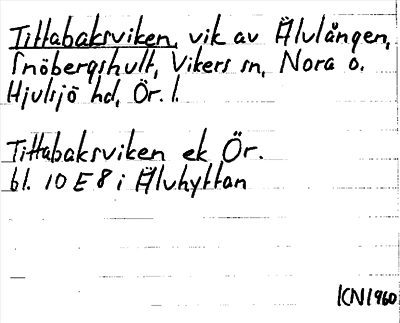 Tittabaksviken, vik av Älvlången,
Snöbergshult, Vikers sn, Nora o.
Hjulsjö hd, Ör. l.
Tittabaksviken ek Ör.
bl. 10 E 8 i Älvhyttan
KN 1960